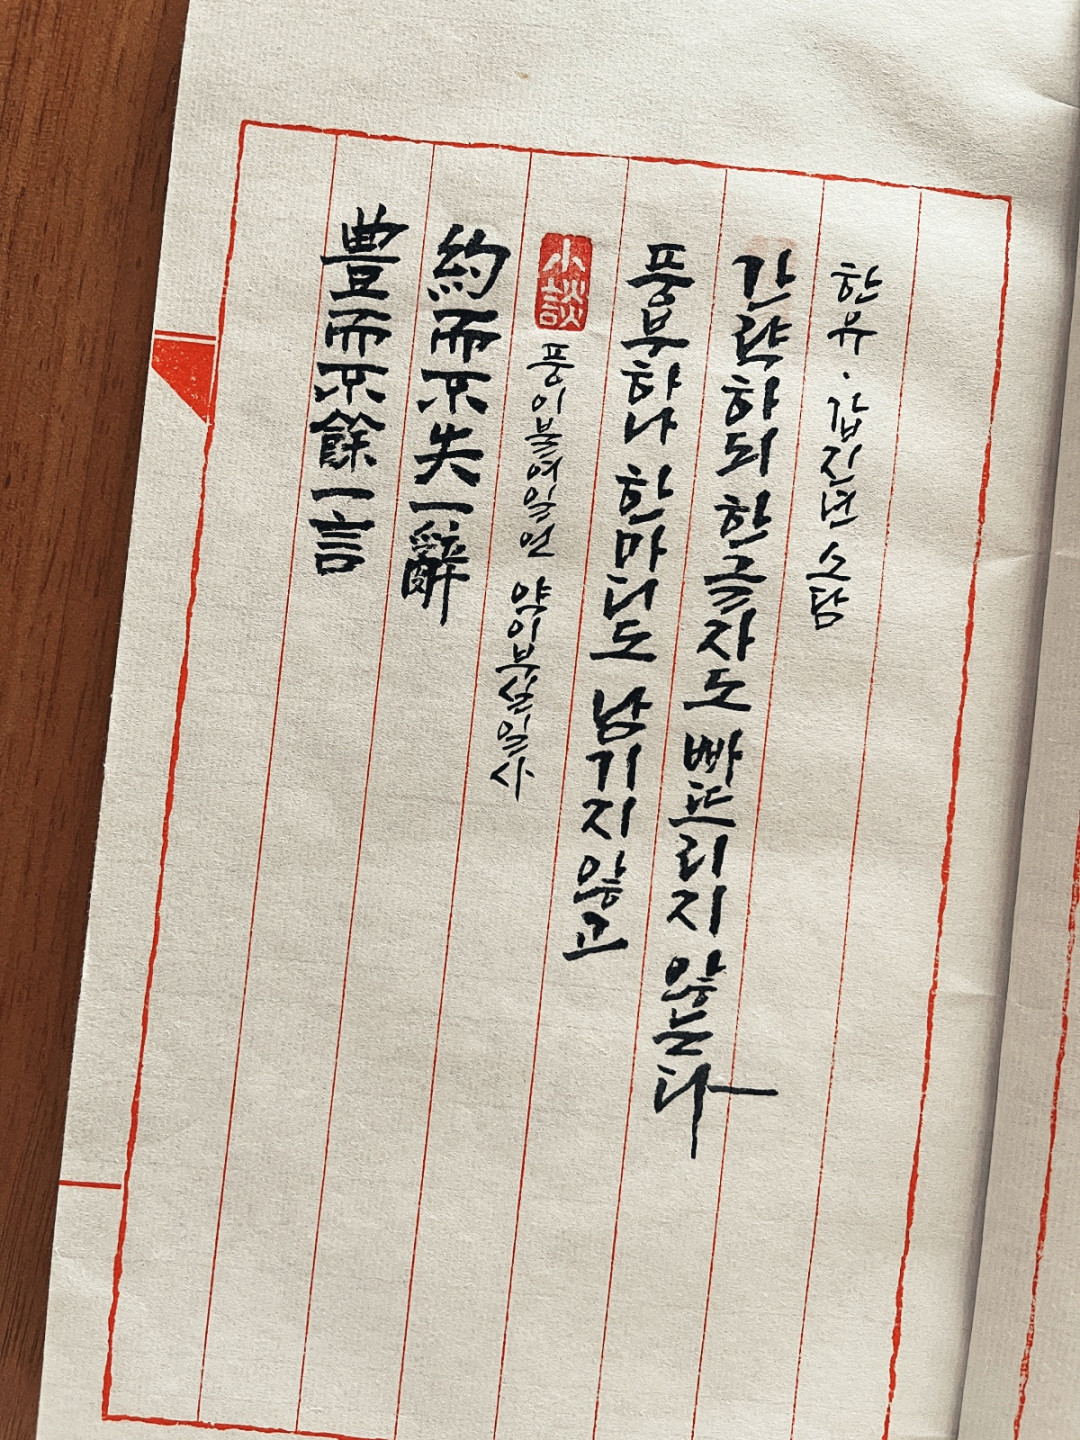 豊而不餘一言
約而不失一辭
小談
풍이불여일언 약이부실일사
풍부하나 한마디도 남기지 않고
간략하되 한글자도 빠뜨리지 않는다
한유·갑진년 소담